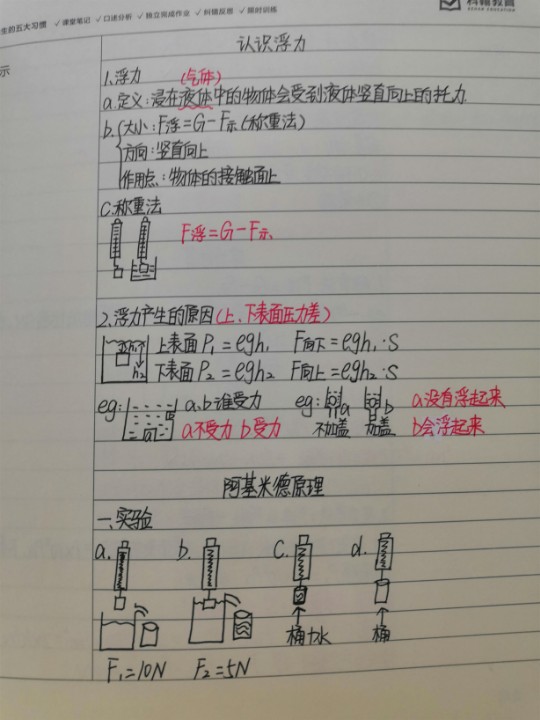 生的五大习惯 ✓课堂笔记 ✓口述分析 ✓独立完成作业 ✓纠错反思 ✓限时训练
科翰教育
示
认识浮力
1.浮力 (气体)
a.定义:浸在液体中的物体会受到液体竖直向上的托力
b.大小:F浮=G-F示(称重法)
方向:竖直向上
作用点:物体的接触面上
C.称重法
F浮=G-F示
2.浮力产生的原因(上、下表面压力差)
h1 上表面P1=egh1 F向下=egh1·S
h2 下表面P2=egh2 F向上=egh2·S
eg: a.b谁受力 eg: a b a没有浮起来
a a不受力 b受力 不加盖 加盖 b会浮起来
阿基米德原理
一.实验
a. b. C. d.
桶+水 桶
F1=10N F2=5N